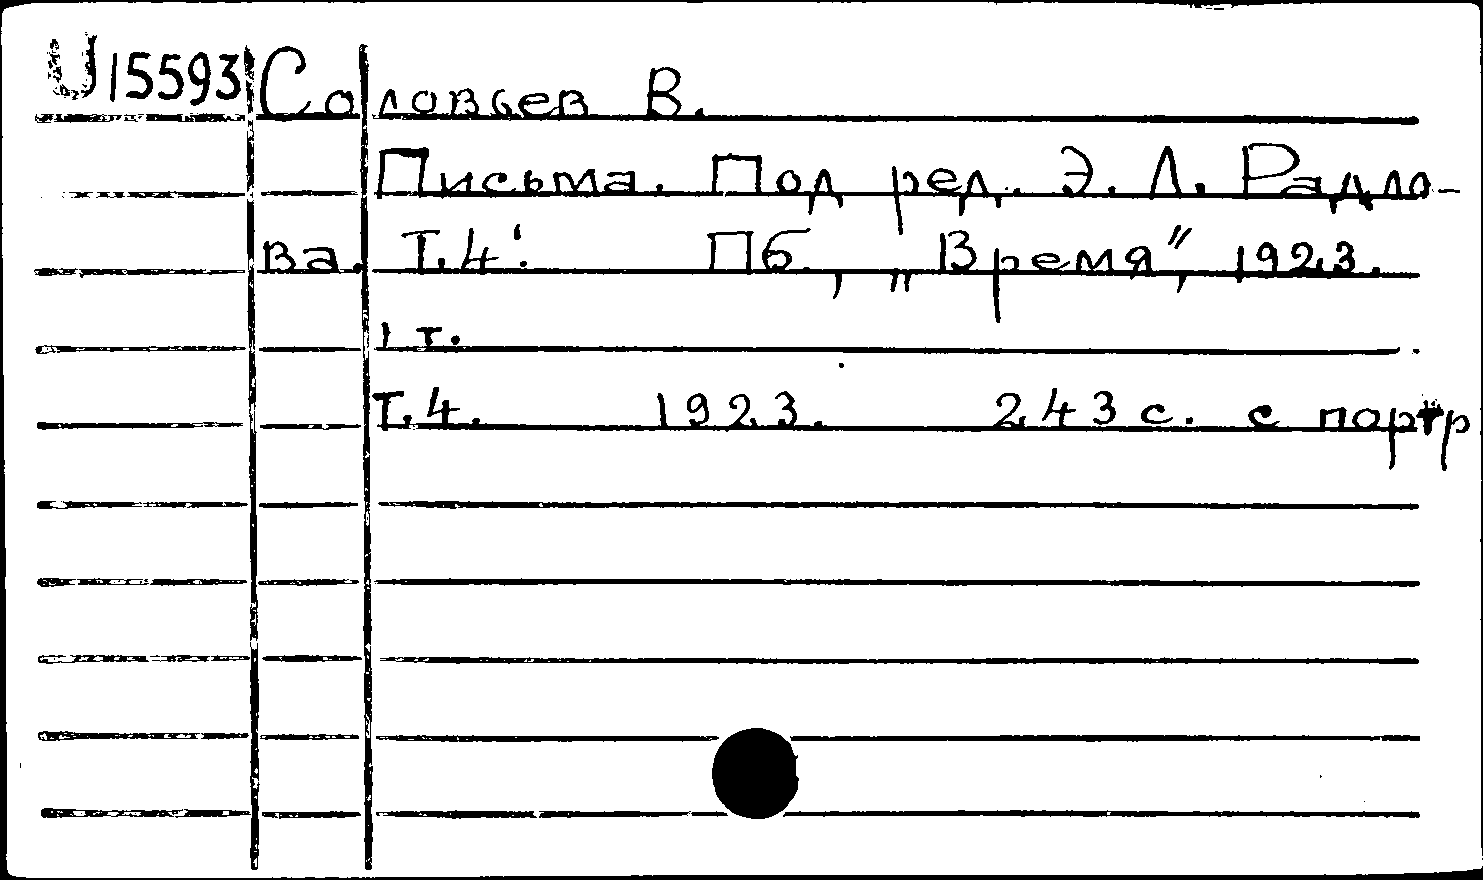 U 15593 Соловьев В.
Письма. Под ред. Э. Л. Радло-
ва. Т.4: Пб., „Время", 1923.
1 т.
Т.4. 1923. 243 с. с портр